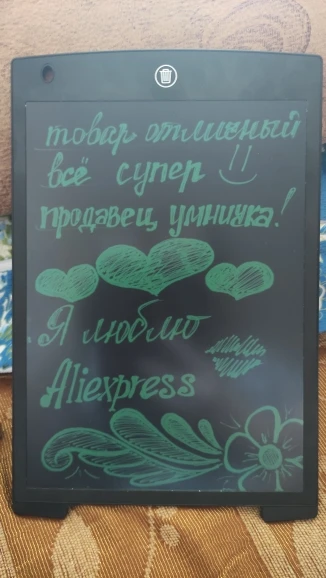 товар отличный
всё супер
продавец умничка!
Я люблю
Aliexpress